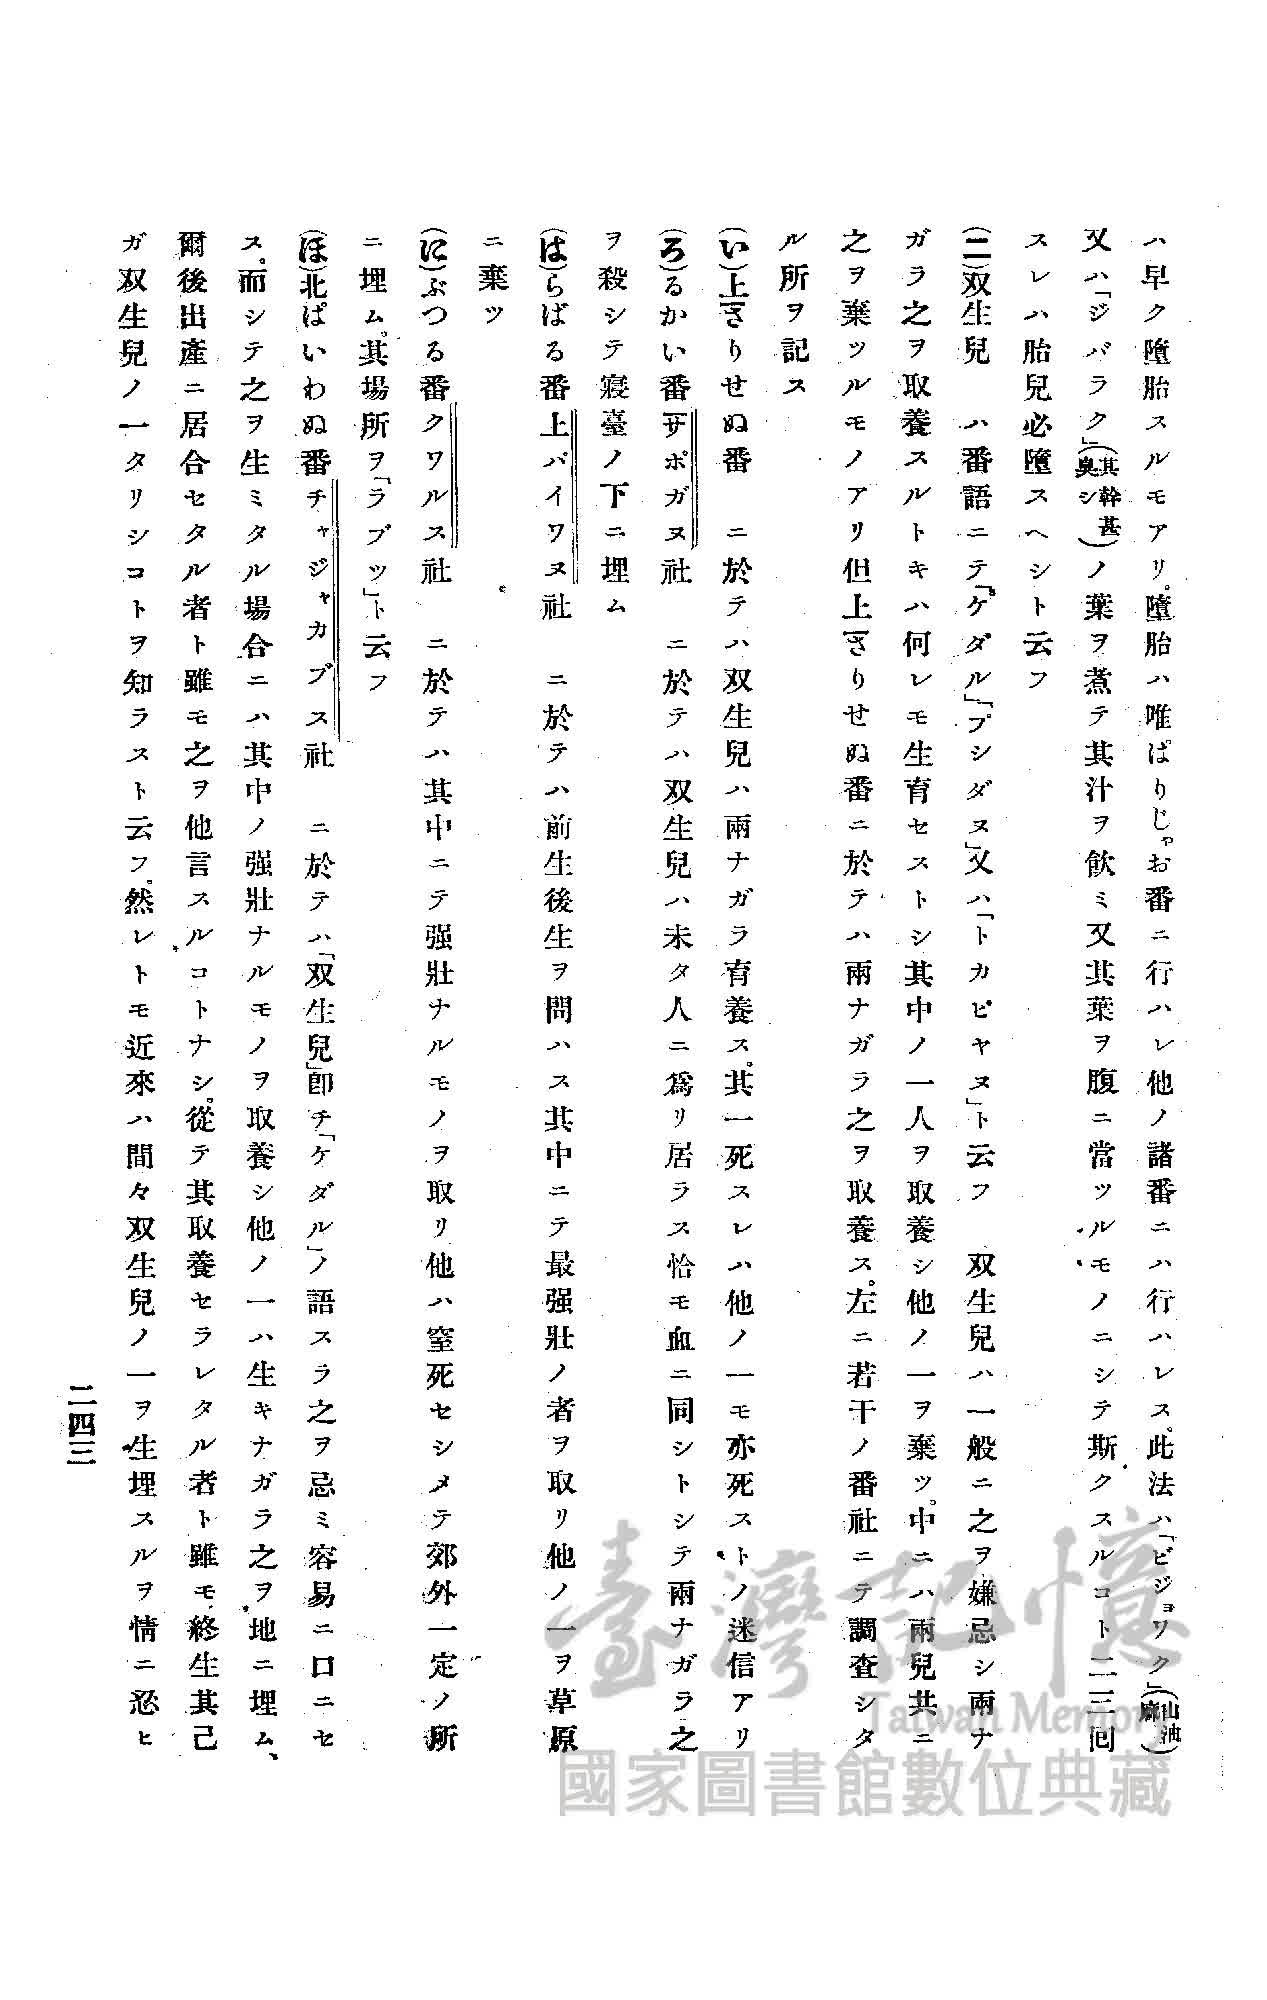 ハ早ク墮胎スルモアリ。墮胎ハ唯ぱりじゃお番ニ行ハレ他ノ諸番ニハ行ハレス。此法ハ「ビジョワク」(山油麻)
又ハ「ジバラク」(其幹甚臭シ)ノ葉ヲ煮テ其汁ヲ飮ミ又其葉ヲ腹ニ當ツルモノニシテ斯クスルコト二三回
スレハ胎兒必墮スヘシト云フ
(二)双生兒 ハ番語ニテ「ケダル」「プシダヌ」又ハ「トカピヤヌ」ト云フ 双生兒ハ一般ニ之ヲ嫌忌シ兩ナ
ガラ之ヲ取養スルトキハ何レモ生育セストシ其中ノ一人ヲ取養シ他ノ一ヲ棄ツ。中ニハ兩兒共ニ
之ヲ棄ツルモノアリ但上さりせぬ番ニ於テハ兩ナガラ之ヲ取養ス。左ニ若干ノ番社ニテ調査シタ
ル所ヲ記ス
(い)上さりせぬ番 ニ於テハ双生兒ハ兩ナガラ育養ス。其一死スレハ他ノ一モ亦死ストノ迷信アリ
(ろ)るかい番サポガヌ社 ニ於テハ双生兒ハ未タ人ニ爲リ居ラス恰モ血ニ同シトシテ兩ナガラ之
ヲ殺シテ寢臺ノ下ニ埋ム
(は)らばる番上パイワヌ社 ニ於テハ前生後生ヲ問ハス其中ニテ最强壯ノ者ヲ取リ他ノ一ヲ草原
ニ棄ツ
(に)ぶつる番クワルス社 ニ於テハ其中ニテ强壯ナルモノヲ取リ他ハ窒死セシメテ郊外一定ノ所
ニ埋ム。其場所ヲ「ラブツ」ト云フ
(ほ)北ぱいわぬ番チャジャカブス社 ニ於テハ「双生兒」卽チ「ケダル」ノ語スラ之ヲ忌ミ容易ニ口ニセ
ス。而シテ之ヲ生ミタル場合ニハ其中ノ强壯ナルモノヲ取養シ他ノ一ハ生キナガラ之ヲ地ニ埋ム、
爾後出產ニ居合セタル者ト雖モ之ヲ他言スルコトナシ。從テ其取養セラレタル者ト雖モ終生其己
ガ双生兒ノ一タリシコトヲ知ラスト云フ。然レトモ近來ハ間々双生兒ノ一ヲ生埋スルヲ情ニ忍ヒ
二四三
臺灣記憶
Taiwan Memory
國家圖書館數位典藏